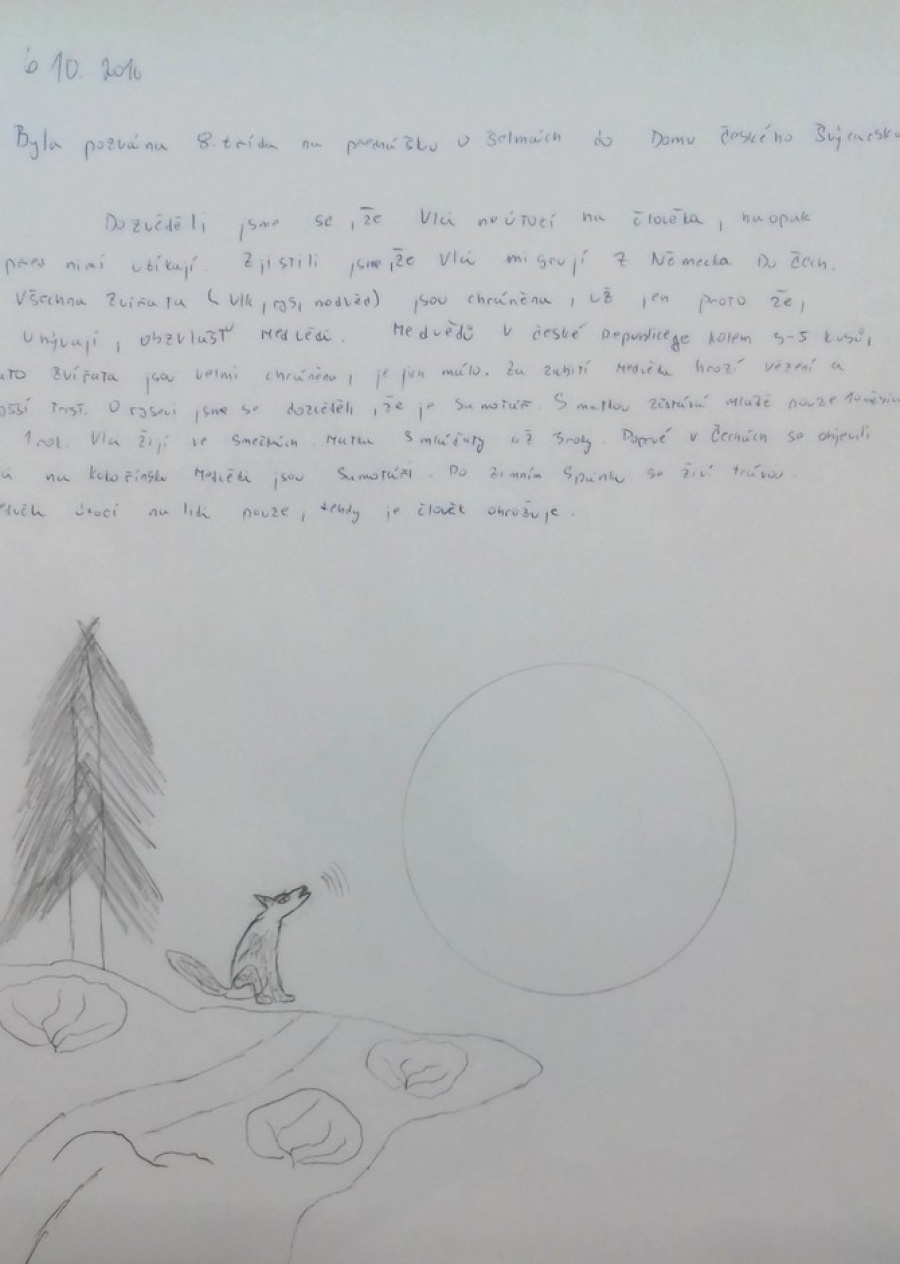 10. 2016
Byla pozvána 8. třída na přednášku o šelmách do Domu českého Švýcarska
Dozvěděli jsme se, že Vlci neútočí na člověka, naopak
před nimi utíkají. Zjistili jsme, že Vlci migrují z Německa Do Čech.
Všechna Zvířata (Vlk, rys, medvěd) jsou chráněna, už jen proto že,
Uhývají, obzvlášť Medvědi. Medvědů v české Republice je kolem 3-5 kusů,
zvířata jsou velmi chráněna, je jich málo. Za zabití Medvěda hrozí vězení a
trest. O rysovi jsme se dozvěděli, že je Samotář. S matkou zůstává mládě pouze 10 měsíců
1 rok. Vlci žijí ve Smečkách. Matka S mláďaty až 3 roky. Poprvé v Čechách se objevili
na Kokořínsku Medvědi jsou Samotáři. Po zimním Spánku se živí trávou.
útočí na lidi pouze, tehdy je člověk ohrožuje.